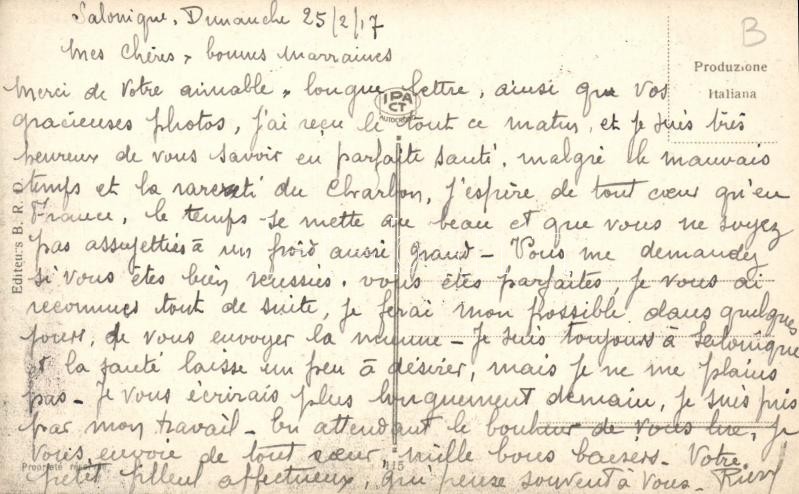 Salonique, Dimanche 25/2/17
B
Mes chères & bonnes marraines
Produzione
Italiana
IPA
CT
AUTOCROM
Merci de votre aimable & longue lettre, ainsi que vos
gracieuses photos, j'ai reçu le tout ce matin, et je suis très
heureux de vous savoir en parfaite santé, malgré le mauvais
temps et la rareté du charbon, j'espère de tout cœur qu'en
France, le temps se mette au beau et que vous ne soyez
pas assujetties à un froid aussi grand - Vous me demandez
si vous êtes bien réussies, vous êtes parfaites, je vous ai
reconnues tout de suite, je ferai mon possible dans quelques
jours, de vous envoyer la mienne - Je suis toujours à Salonique
et la santé laisse un peu à désirer, mais je ne me plains
pas - Je vous écrirais plus longuement demain, je suis pris
par mon travail - En attendant le bonheur de vous lire, je
vous envoie de tout cœur, mille bons baisers. Votre
petit filleul affectueux, qui pense souvent à vous -
Editeurs B. R. O.
Propriété réservée
115